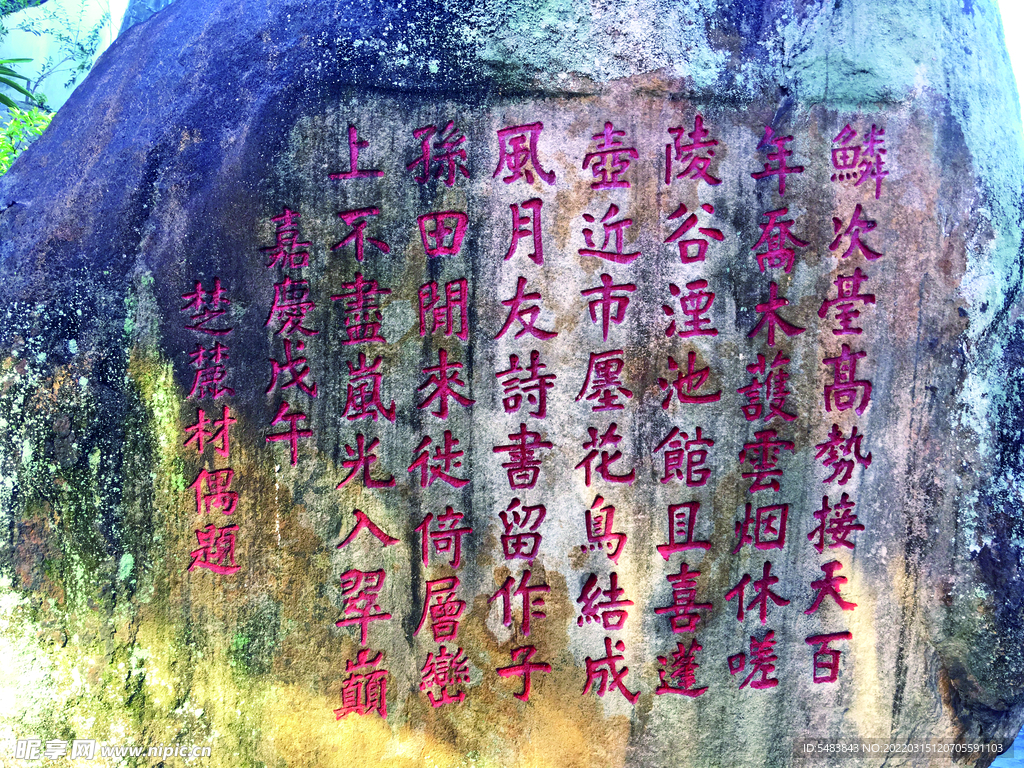 鱗次臺高勢接天百
年喬木護雲烟休嗟
陵谷湮池館且喜蓬
壺近市廛花鳥結成
風月友詩書留作子
孫田閒來徙倚層巒
上不盡嵐光入翠巔
嘉慶戊午
楚麓材偶題
昵享网 www.nipic.cn
ID:5483843 NO:20220315120705591103